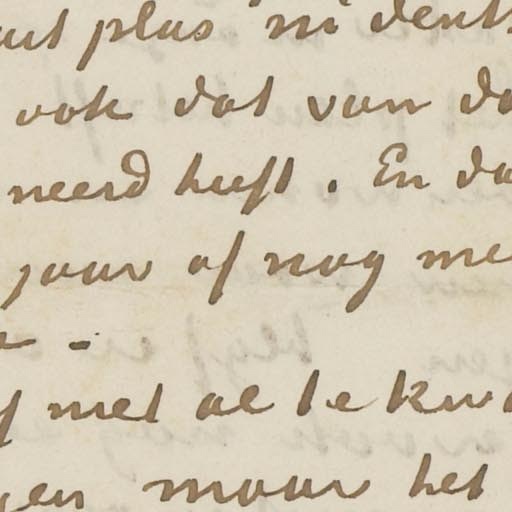 plus ni dents
ook dat van da
neerd heeft. En da
jaar of nog me
-
met al te kwa
gen maar het